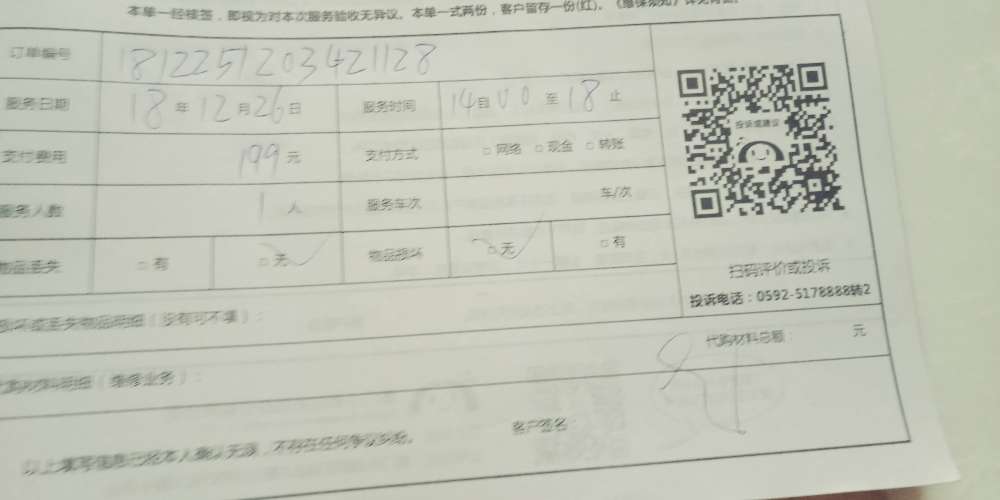 本单一经核签，即视为对本次服务验收无异议。本单一式两份，客户留存一份(红)。
订单编号 1812251203421128
服务日期 18 年 12 月 26 日 服务时间 14 自 00 至 18 止
支付费用 199 元 支付方式 □ 网络 □ 现金 □ 转账
服务人数 1 人 服务车次 车/次
物品丢失 □ 有 □ 无 物品损坏 □ 无 □ 有
投诉或建议
扫码评价或投诉
投诉电话：0592-5178888转2
损坏或丢失物品明细（没有可不填）：
代购材料明细（维修业务）： 代购材料总额： 元
以上填写信息已经本人确认无误，不存在任何争议纠纷。 客户签名：